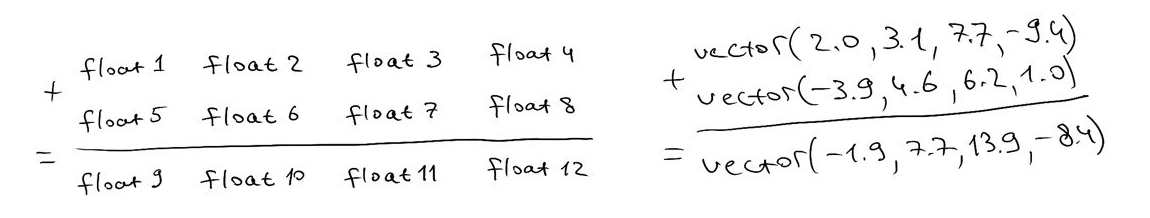 + float 1 float 2 float 3 float 4
float 5 float 6 float 7 float 8
= float 9 float 10 float 11 float 12
+ vector(2.0, 3.1, 7.7, -9.4)
vector(-3.9, 4.6, 6.2, 1.0)
= vector(-1.9, 7.7, 13.9, -8.4)